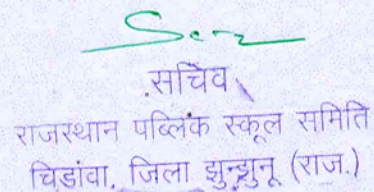 सचिव
राजस्थान पब्लिक स्कूल समिति
चिडांवा, जिला झुन्झुनू (राज.)